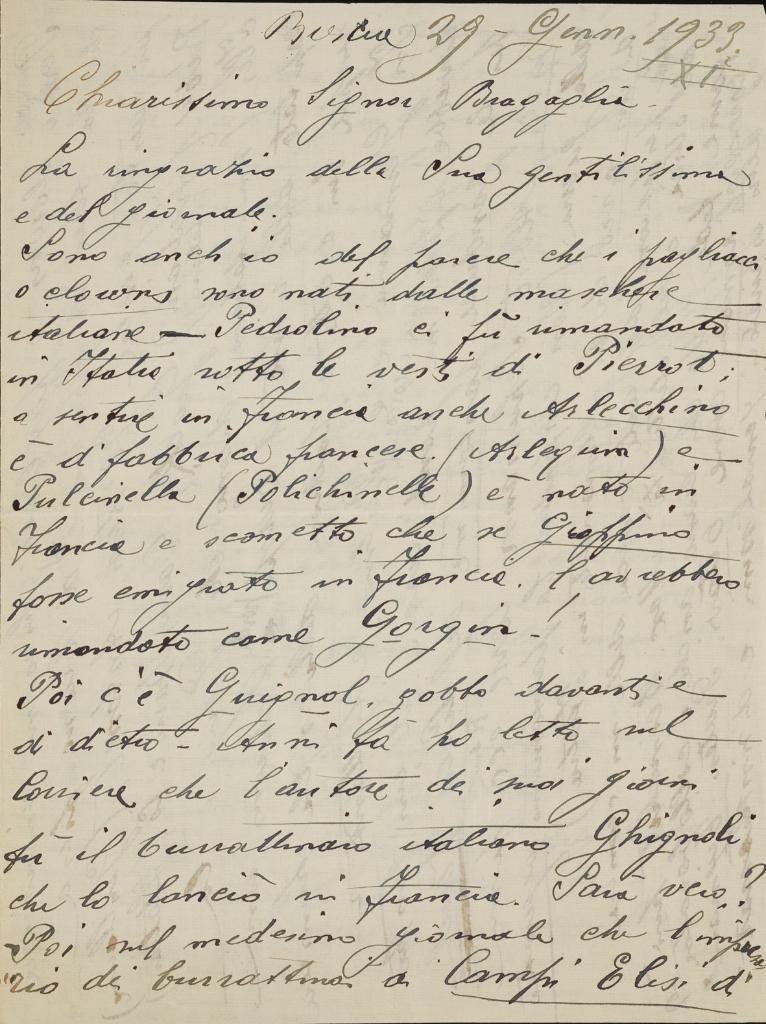 Brescia 29 - Genn. 1933.
XI
Chiarissimo Signor Bragaglia.
La ringrazio della Sua gentilissima
e del giornale.
Sono anch io del parere che i pagliacci
o clowns sono nati dalle maschere
italiane - Pedrolino ci fù rimandato
in Italia sotto le vesti di Pierrot;
a sentire in Francia anche Arlecchino
è di fabbrica francese. (Arlequin) e
Pulcinella (Polichinelle) è nato in
Francia e scometto che se Gioppino
fosse emigrato in Francia. l'avrebbero
rimandato come Gorgin - !
Poi c'è Guignol, gobbo davanti e
di dietro - Anni fà ho letto sul
Corriere che l'autore dei suoi giorni
fù il burrattinaio italiano Ghignoli
che lo lanciò in Francia. Sarà vero?
- Poi sul medesimo giornale che l'impresa
rio di burrattini ai Campi Elisi di